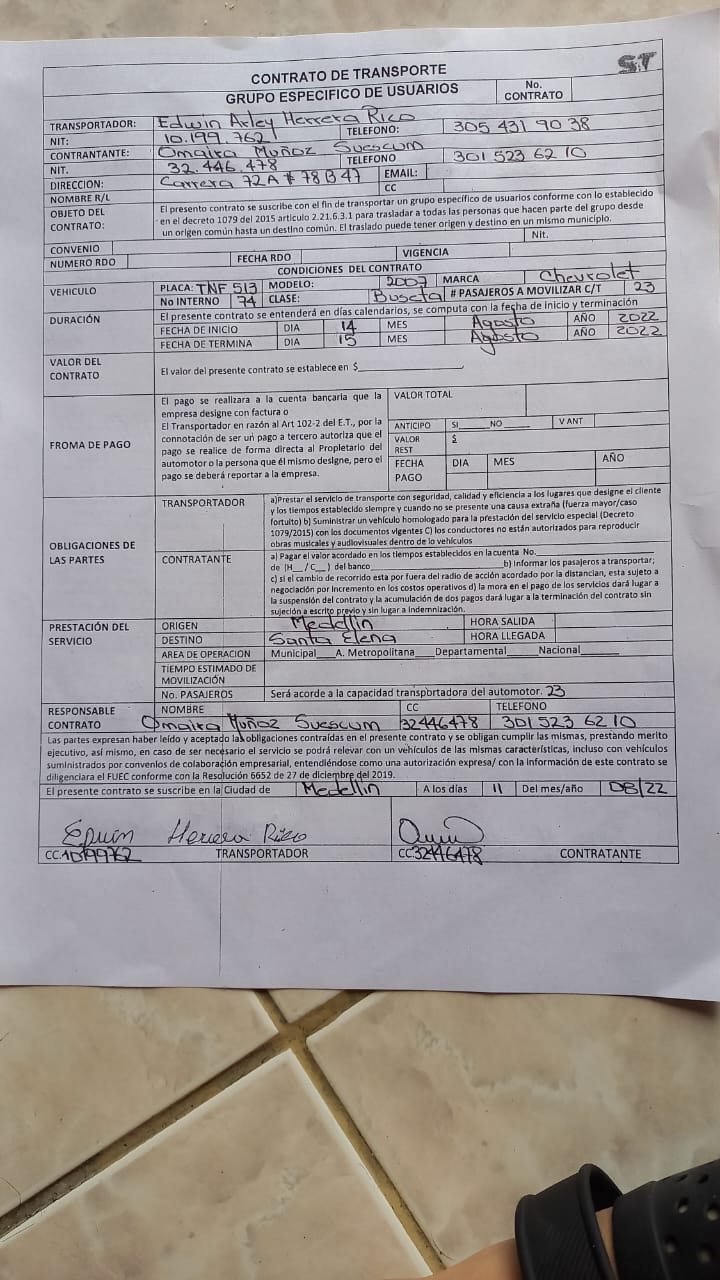 ST
CONTRATO DE TRANSPORTE
GRUPO ESPECIFICO DE USUARIOS
No. CONTRATO
TRANSPORTADOR: Edwin Arley Herrera Rico
NIT: 10.199.762 TELEFONO: 305 431 90 38
CONTRANTANTE: Omaira Muñoz Suescum
NIT. 32.446.478 TELEFONO 301 523 62 10
DIRECCION: Carrera 72A # 78 B 47 EMAIL:
NOMBRE R/L CC
OBJETO DEL CONTRATO:
El presento contrato se suscribe con el fin de transportar un grupo específico de usuarios conforme con lo establecido
en el decreto 1079 del 2015 articulo 2.21.6.3.1 para trasladar a todas las personas que hacen parte del grupo desde
un origen común hasta un destino común. El traslado puede tener origen y destino en un mismo municipio.
CONVENIO Nit.
NUMERO RDO FECHA RDO VIGENCIA
CONDICIONES DEL CONTRATO
VEHICULO PLACA: TNF 513 MODELO: 2007 MARCA Chevrolet
No INTERNO 74 CLASE: Buseta # PASAJEROS A MOVILIZAR C/T 23
DURACIÓN El presente contrato se entenderá en días calendarios, se computa con la fecha de inicio y terminación
FECHA DE INICIO DIA 14 MES Agosto AÑO 2022
FECHA DE TERMINA DIA 15 MES Agosto AÑO 2022
VALOR DEL CONTRATO El valor del presente contrato se establece en $
FROMA DE PAGO
El pago se realizara a la cuenta bancaria que la
empresa designe con factura o
El Transportador en razón al Art 102-2 del E.T., por la
connotación de ser un pago a tercero autoriza que el
pago se realice de forma directa al Propietario del
automotor o la persona que él mismo designe, pero el
pago se deberá reportar a la empresa.
VALOR TOTAL
ANTICIPO SI NO V ANT
VALOR REST $
FECHA PAGO DIA MES AÑO
OBLIGACIONES DE LAS PARTES
TRANSPORTADOR
a)Prestar el servicio de transporte con seguridad, calidad y eficiencia a los lugares que designe el cliente
y los tiempos establecido siempre y cuando no se presente una causa extraña (fuerza mayor/caso
fortuito) b) Suministrar un vehículo homologado para la prestación del servicio especial (Decreto
1079/2015) con los documentos vigentes C) los conductores no están autorizados para reproducir
obras musicales y audiovisuales dentro de lo vehículos
CONTRATANTE
a) Pagar el valor acordado en los tiempos establecidos en la cuenta No.
de (H__/C__) del banco b) Informar los pasajeros a transportar;
c) si el cambio de recorrido esta por fuera del radio de acción acordado por la distancian, esta sujeto a
negociación por incremento en los costos operativos d) la mora en el pago de los servicios dará lugar a
la suspensión del contrato y la acumulación de dos pagos dará lugar a la terminación del contrato sin
sujeción a escrito previo y sin lugar a Indemnización.
PRESTACIÓN DEL SERVICIO
ORIGEN Medellin HORA SALIDA
DESTINO Santa Elena HORA LLEGADA
AREA DE OPERACION Municipal___A. Metropolitana___Departamental___Nacional___
TIEMPO ESTIMADO DE MOVILIZACIÓN
No. PASAJEROS Será acorde a la capacidad transportadora del automotor. 23
RESPONSABLE CONTRATO NOMBRE CC TELEFONO
Omaira Muñoz Suescum 32446478 301 523 62 10
Las partes expresan haber leído y aceptado las obligaciones contraídas en el presente contrato y se obligan cumplir las mismas, prestando merito
ejecutivo, así mismo, en caso de ser necesario el servicio se podrá relevar con un vehículos de las mismas características, incluso con vehículos
suministrados por convenios de colaboración empresarial, entendiéndose como una autorización expresa/ con la información de este contrato se
diligenciara el FUEC conforme con la Resolución 6652 de 27 de diciembre del 2019.
El presente contrato se suscribe en la Ciudad de Medellin A los días 11 Del mes/año 08/22
Herrera Rico
CC.10199762 TRANSPORTADOR
CC32446478 CONTRATANTE